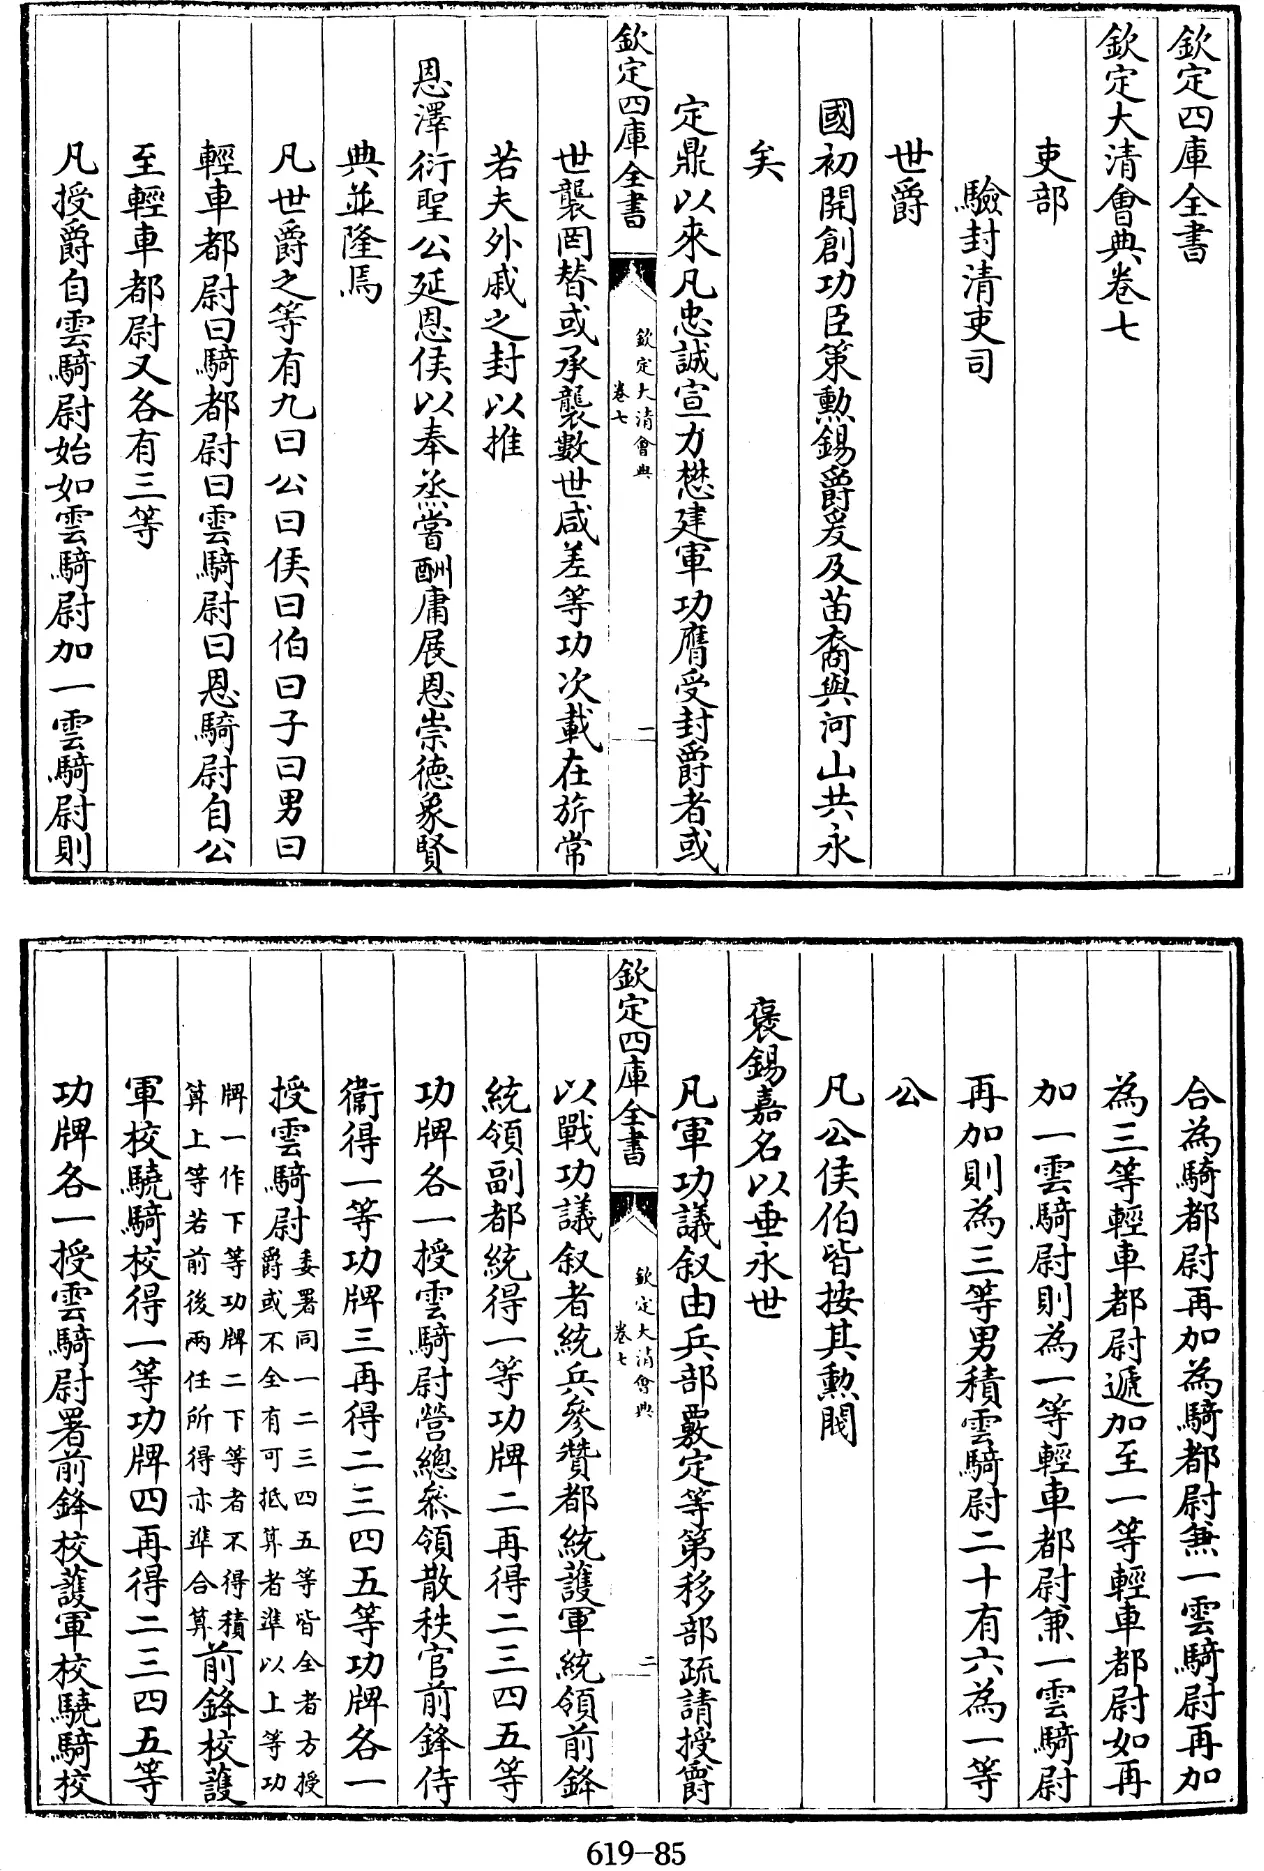 欽定四庫全書
欽定大清會典卷七
吏部
驗封清吏司
世爵
國初開創功臣策勲錫爵爰及苗裔與河山共永
矣
定鼎以來凡忠誠宣力懋建軍功膺受封爵者或
欽定四庫全書
欽定大清會典
卷七
一
世襲罔替或承襲數世咸差等功次載在旂常
若夫外戚之封以推
恩澤衍聖公延恩侯以奉烝嘗酬庸展恩崇德象賢
典並隆焉
凡世爵之等有九曰公曰侯曰伯曰子曰男曰
輕車都尉曰騎都尉曰雲騎尉曰恩騎尉自公
至輕車都尉又各有三等
凡授爵自雲騎尉始如雲騎尉加一雲騎尉則
合為騎都尉再加為騎都尉兼一雲騎尉再加
為三等輕車都尉遞加至一等輕車都尉如再
加一雲騎尉則為一等輕車都尉兼一雲騎尉
再加則為三等男積雲騎尉二十有六為一等
公
凡公侯伯皆按其勲閥
褒錫嘉名以垂永世
凡軍功議叙由兵部覈定等第移部疏請授爵
欽定四庫全書
欽定大清會典
卷七
二
以戰功議叙者統兵參贊都統護軍統領前鋒
統領副都統得一等功牌二再得二三四五等
功牌各一授雲騎尉營總叅領散秩官前鋒侍
衞得一等功牌三再得二三四五等功牌各一
授雲騎尉委署同一二三四五等皆全者方授
爵或不全有可抵算者準以上等功
牌一作下等功牌二下等者不得積
算上等若前後兩任所得亦準合算前鋒校護
軍校驍騎校得一等功牌四再得二三四五等
功牌各一授雲騎尉署前鋒校護軍校驍騎校
619-85